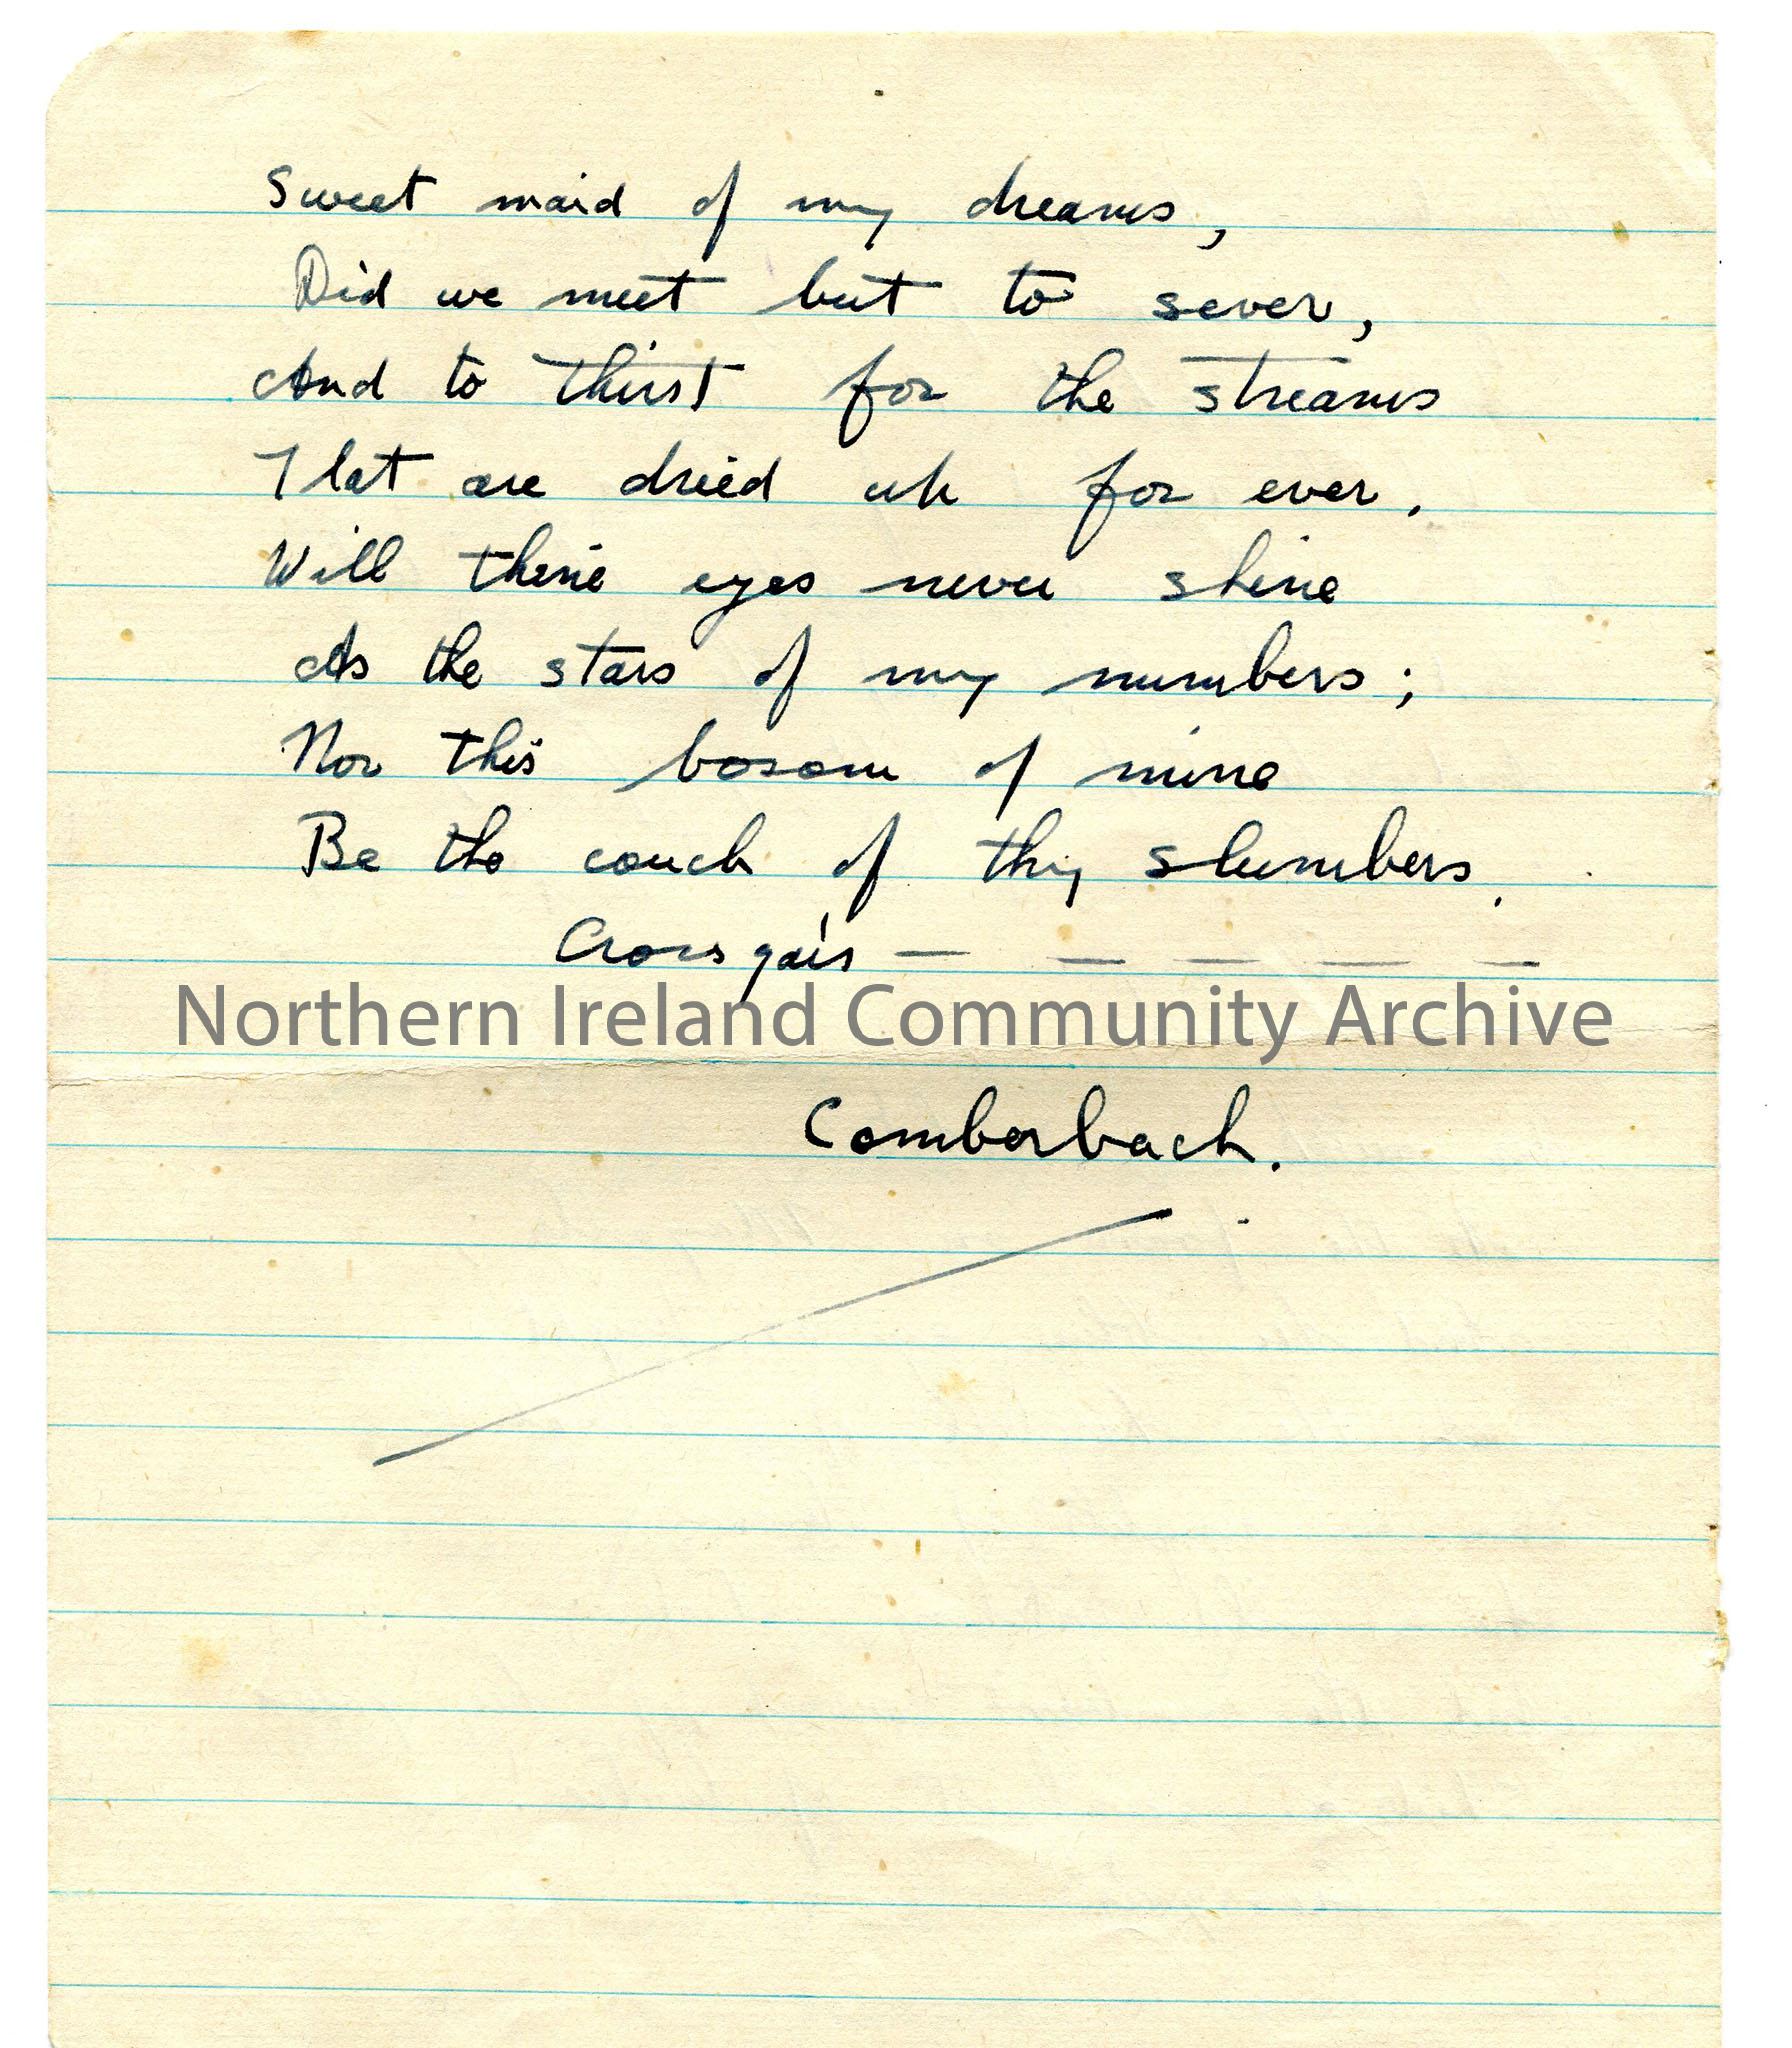 Sweet maid of my dreams,
Did we meet but to sever,
And to thirst for the streams
That are dried up for ever.
Will thine eyes never shine
As the stars of my numbers;
Nor this bosom of mine
Be the couch of thy slumbers.
Crossgais — — — — —
Northern Ireland Community Archive
Comberbach.